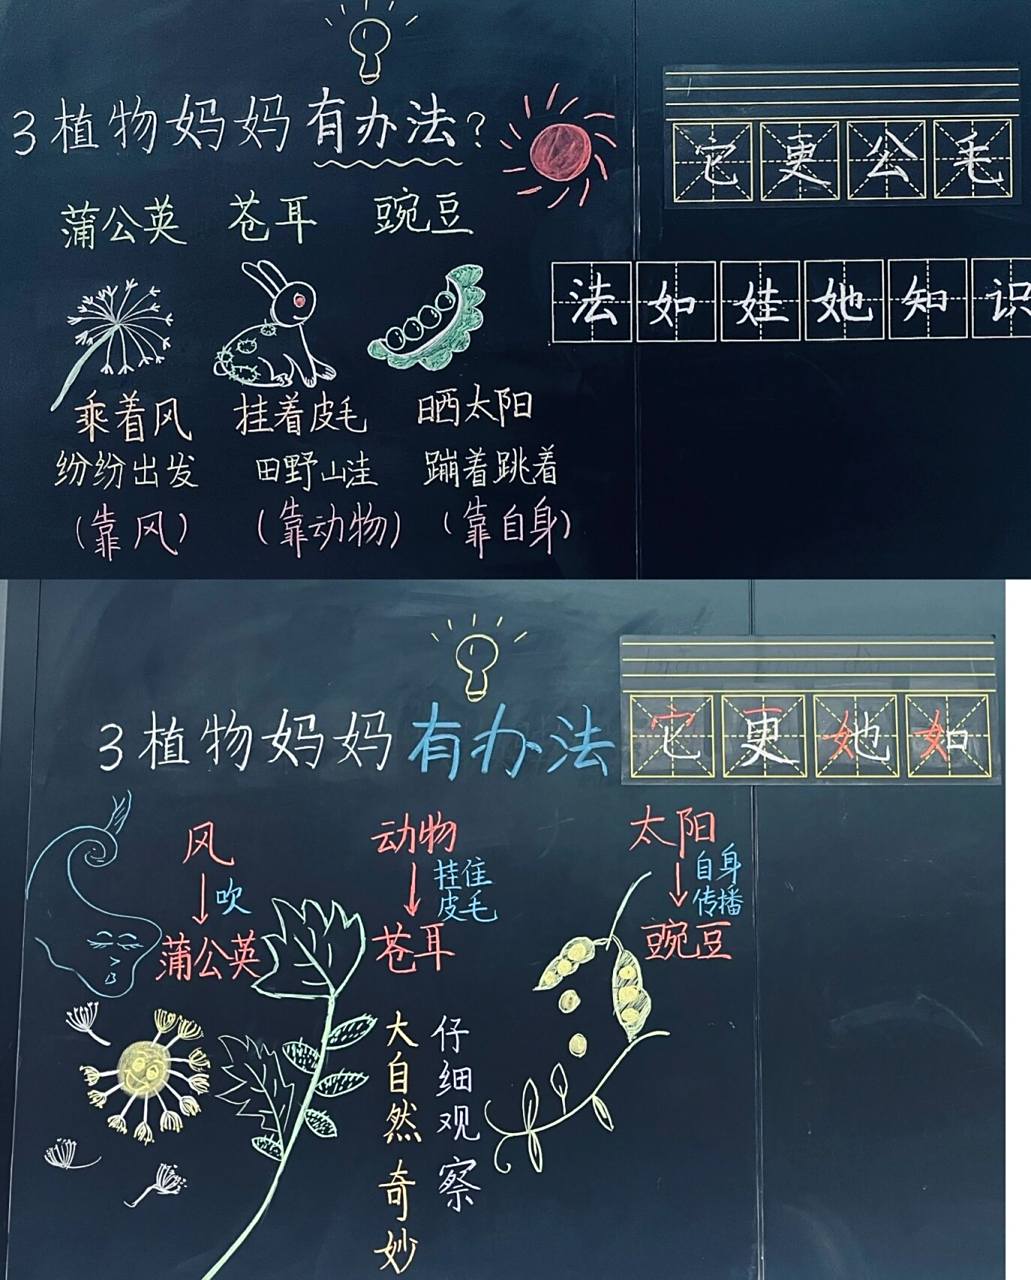 3 植物妈妈有办法?
它更公毛
蒲公英 苍耳 豌豆
法如娃她知识
乘着风 挂着皮毛 晒太阳
纷纷出发 田野山洼 蹦着跳着
(靠风) (靠动物) (靠自身)
3 植物妈妈有办法
它更她如
风 动物 太阳
吹 挂住皮毛 自身传播
蒲公英 苍耳 豌豆
仔细观察
大自然奇妙